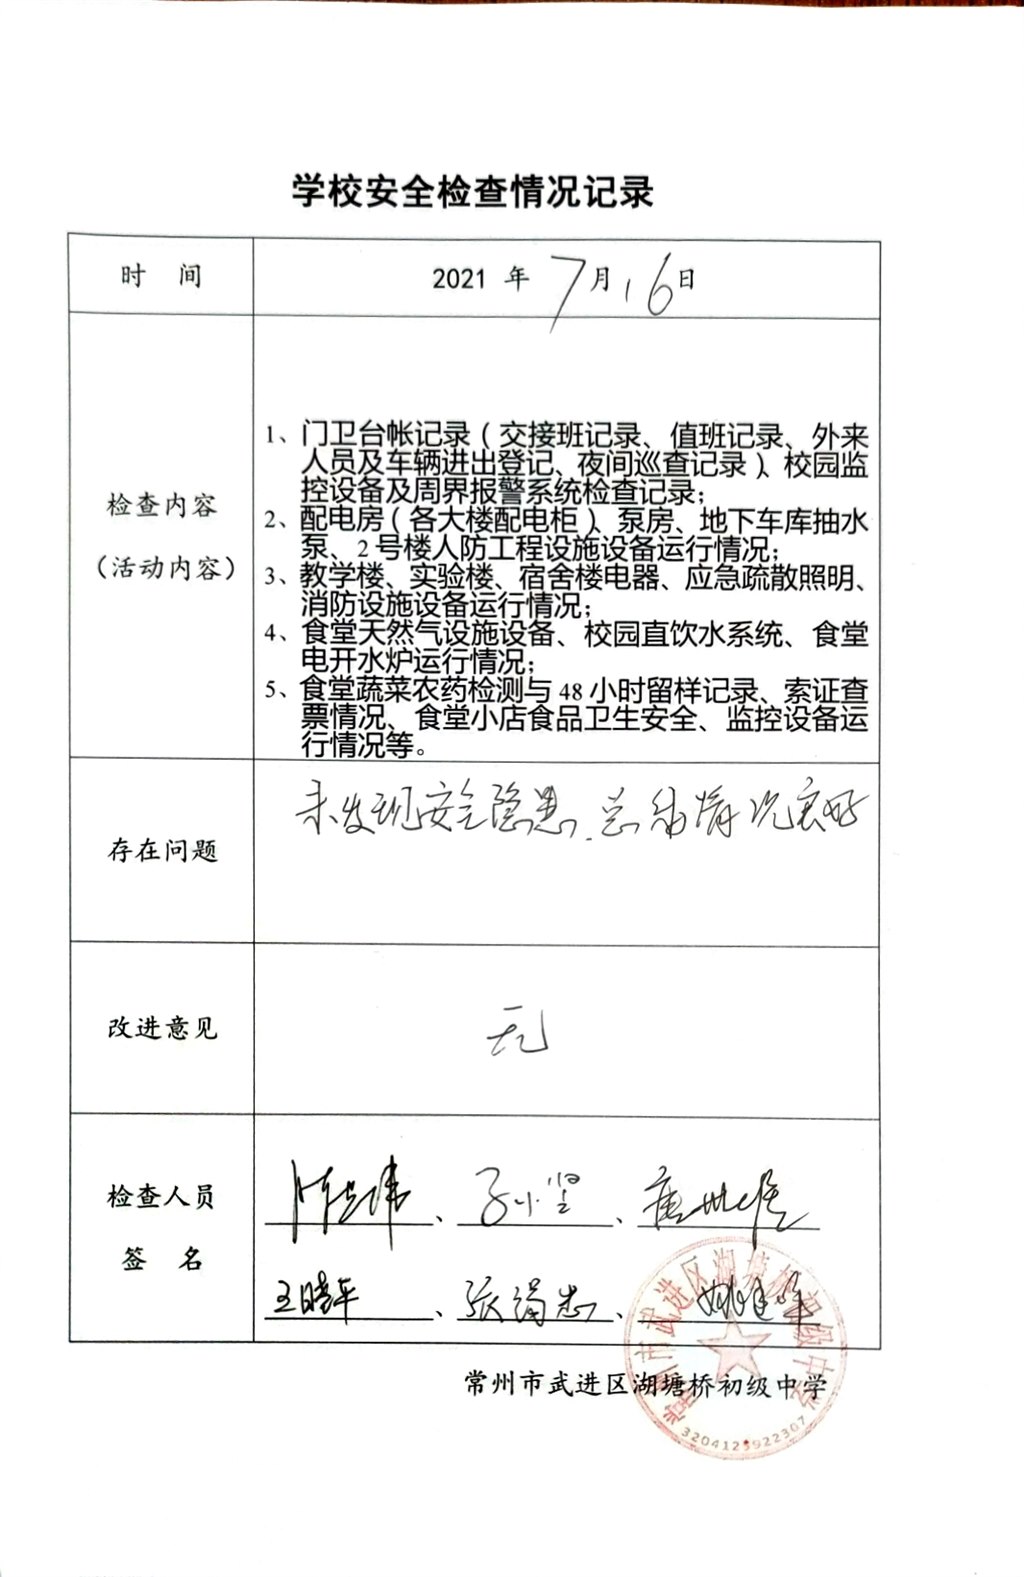 学校安全检查情况记录
时 间
2021 年 7月16日
检查内容
（活动内容）
1、门卫台帐记录（交接班记录、值班记录、外来
人员及车辆进出登记、夜间巡查记录）、校园监
控设备及周界报警系统检查记录；
2、配电房（各大楼配电柜）、泵房、地下车库抽水
泵、2号楼人防工程设施设备运行情况；
3、教学楼、实验楼、宿舍楼电器、应急疏散照明、
消防设施设备运行情况；
4、食堂天然气设施设备、校园直饮水系统、食堂
电开水炉运行情况；
5、食堂蔬菜农药检测与48小时留样记录、索证查
票情况、食堂小店食品卫生安全、监控设备运
行情况等。
存在问题
未发现安全隐患.总体情况良好
改进意见
无
检查人员
签 名
王晓平
常州市武进区湖塘桥初级中学
常州市武进区湖塘桥初级中学